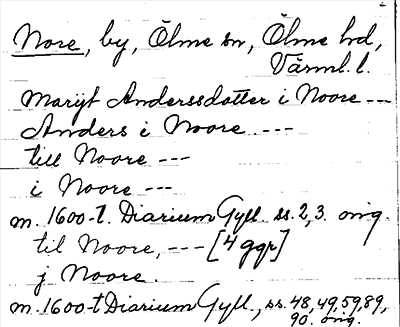 Nore, by, Ölme sn, Ölme hd,
Värml. l.
Marijt Anderssdotter i Noore ---
Anders i Noore ---
till Noore ---
i Noore ---
m. 1600-t. Diarium Gyll. ss. 2, 3. orig.
til Noore, --- [4 ggr]
j Noore.
m. 1600-t Diarium Gyll., ss. 48, 49, 59, 89,
90. orig.